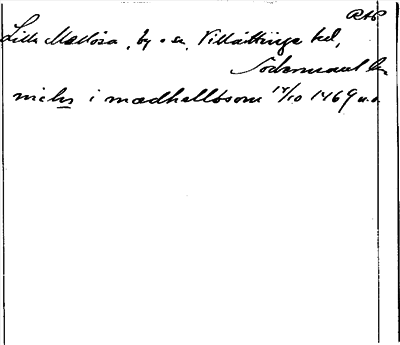 RAP
Lilla Mellösa, by o sn, Villåttinge hd,
Södermanl. län
nichs i mædhalløsom 17/10 1469 u.o.